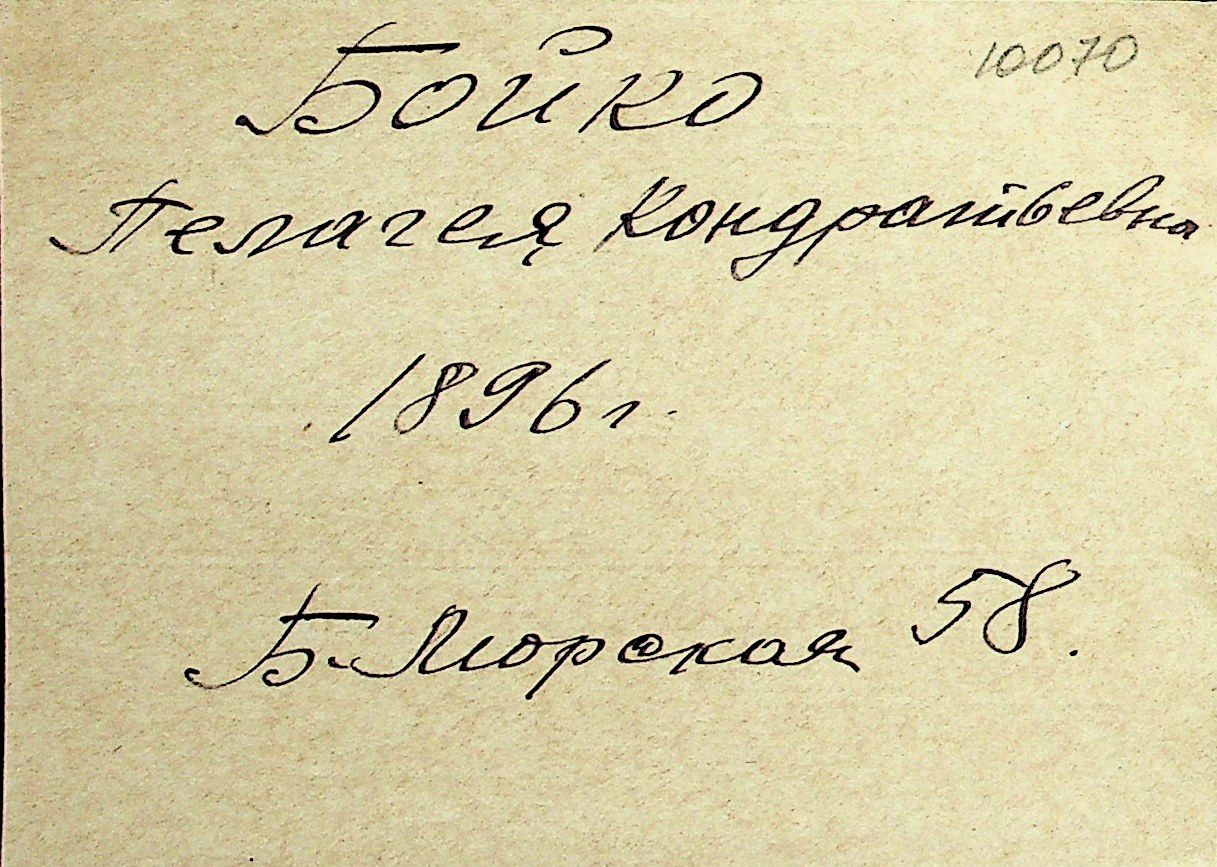 10070
Бойко
Пелагея Кондратьевна
1896 г.
Б-Морская 58.